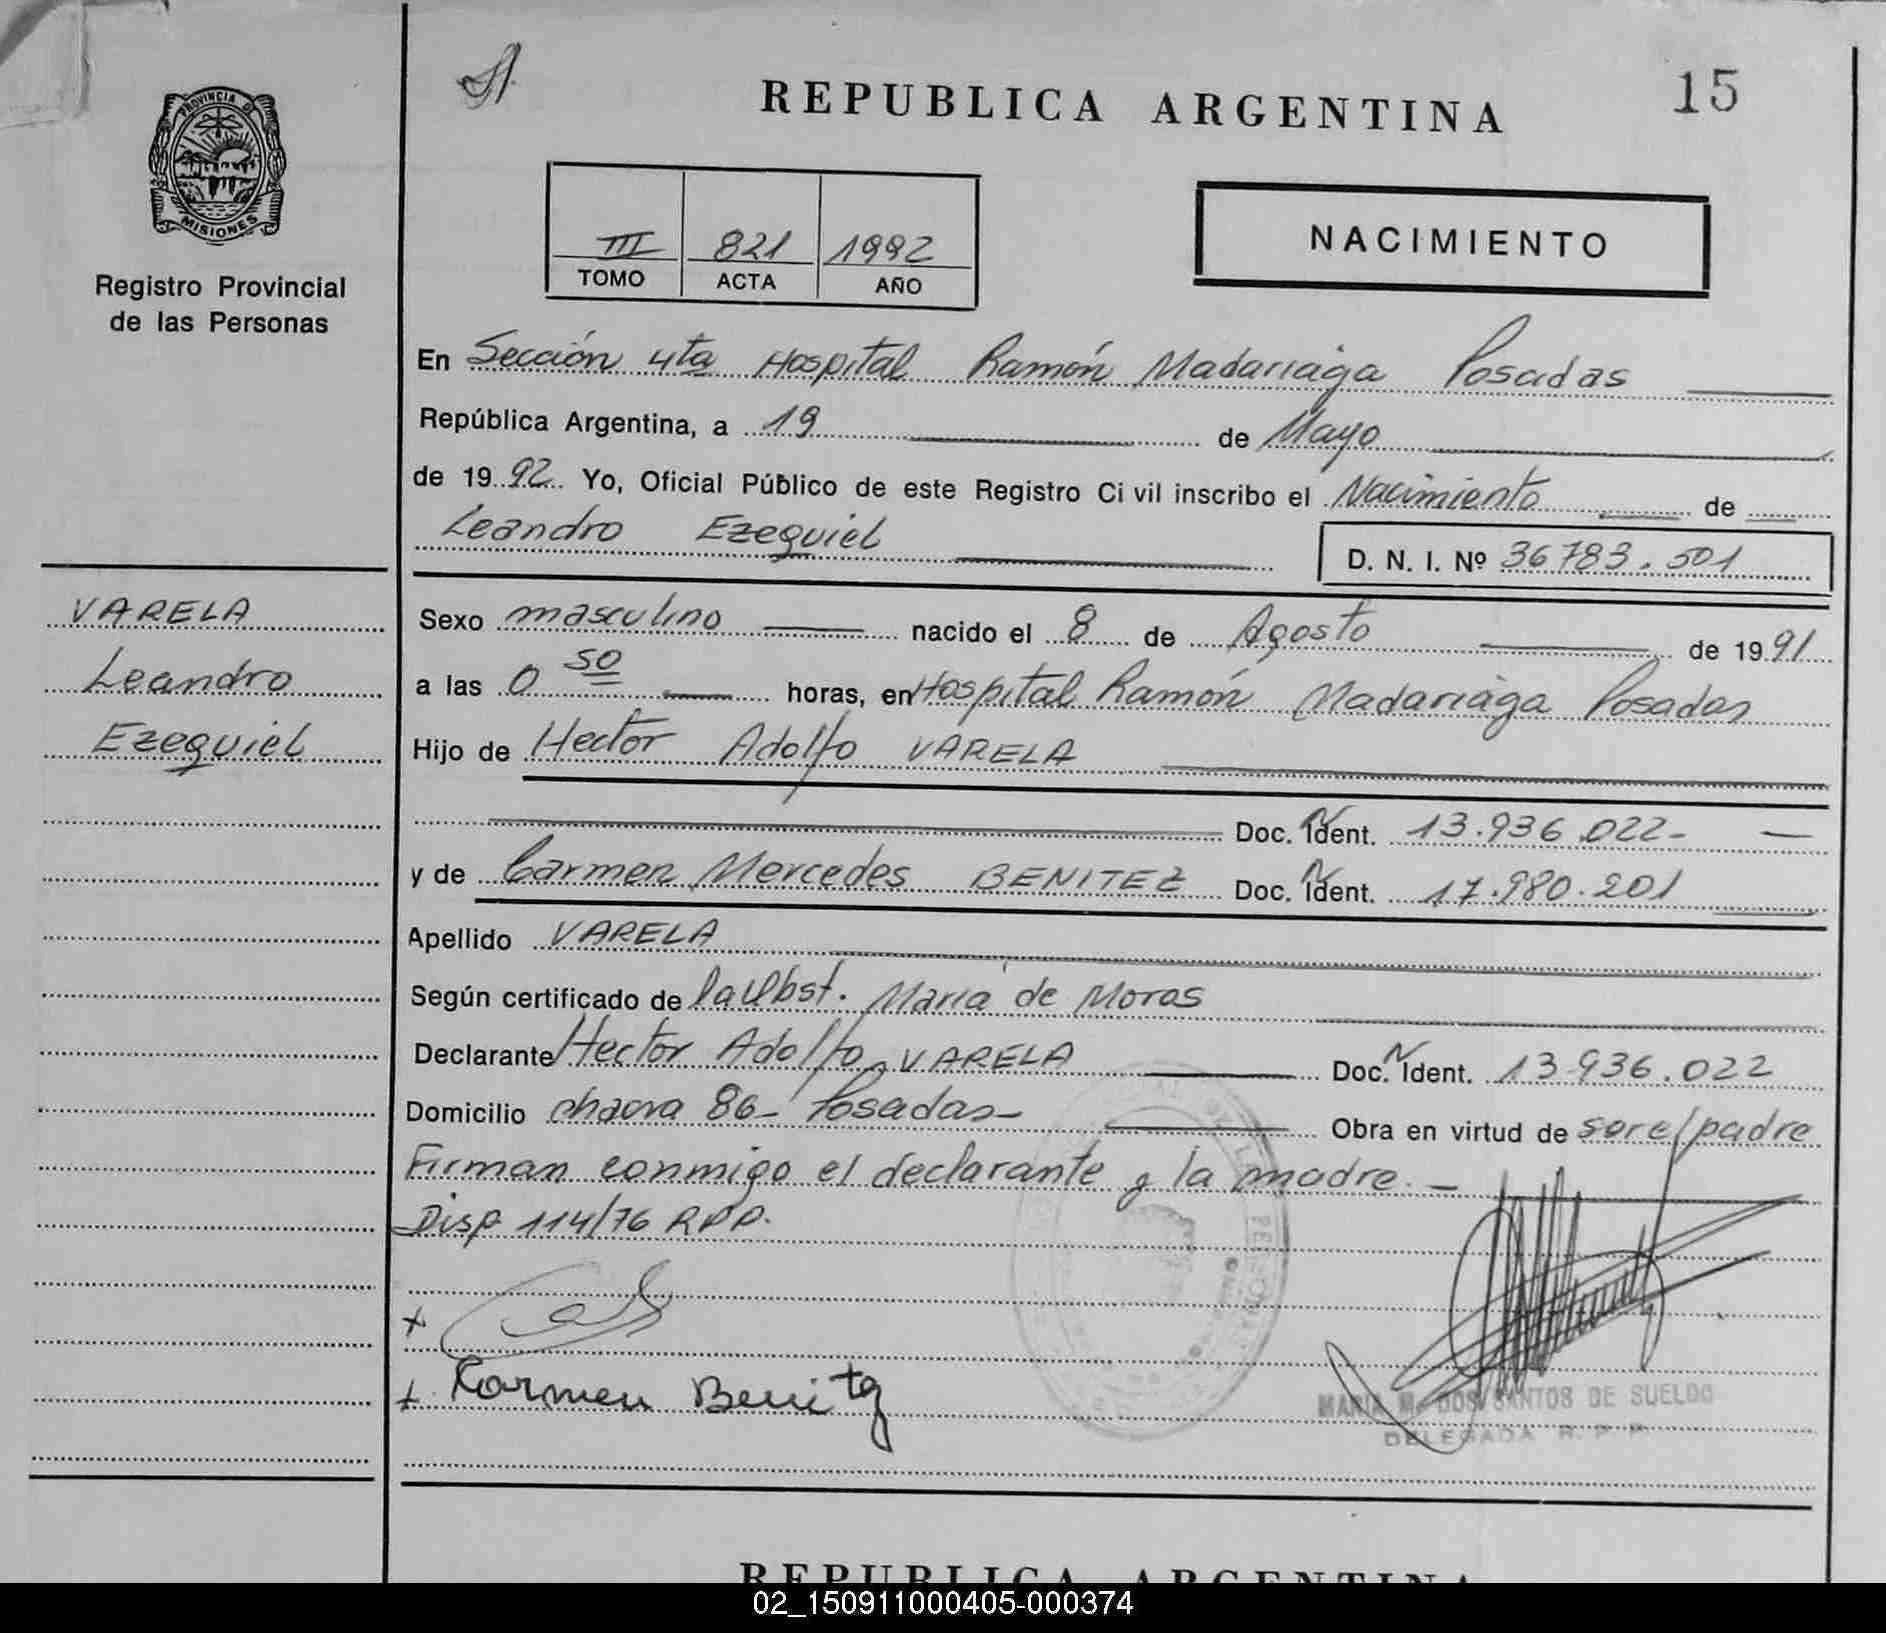 PROVINCIA DE
MISIONES
Registro Provincial
de las Personas
VARELA
Leandro
Ezequiel
REPUBLICA ARGENTINA
15
III 821 1992
TOMO ACTA AÑO
NACIMIENTO
En Sección 4ta Hospital Ramón Madariaga Posadas
República Argentina, a 19 de Mayo
de 1992. Yo, Oficial Público de este Registro Ci vil inscribo el Nacimiento de
Leandro Ezequiel
D. N. I. Nº 36783.501
Sexo masculino nacido el 8 de Agosto de 1991
a las 0 50 horas, en Hospital Ramón Madariaga Posadas
Hijo de Hector Adolfo VARELA
Doc. Ident. 13.936.022-
y de Carmen Mercedes BENITEZ Doc. Ident. 17.980.201
Apellido VARELA
Según certificado de la Obst. María de Moras
Declarante Hector Adolfo VARELA Doc. Ident. 13.936.022
Domicilio chacra 86- Posadas- Obra en virtud de ser el padre
Firman conmigo el declarante y la madre.-
Disp 114/76 RPP.
+
+ Karmen Benitez
MARIA M. DOS SANTOS DE SUELDO
DELEGADA R. P. P.
REPUBLICA ARGENTINA
02_150911000405-000374